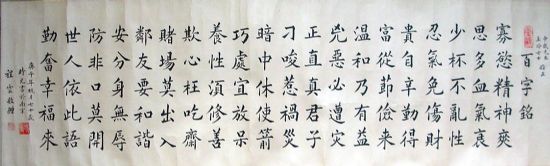 百字銘
寡慾精神爽
思多血氣衰
少杯不亂性
忍氣免傷財
貴自辛勤得
富從節儉來
溫和益
兇惡必遭災
正直真君子
刁唆惹禍
暗中休使箭
巧處宜放呆
養性須修善
欺心枉吃齋
賭場莫出入
鄰友要和諧
安分身無辱
防非口莫開
世人依此語
勤奮幸福來